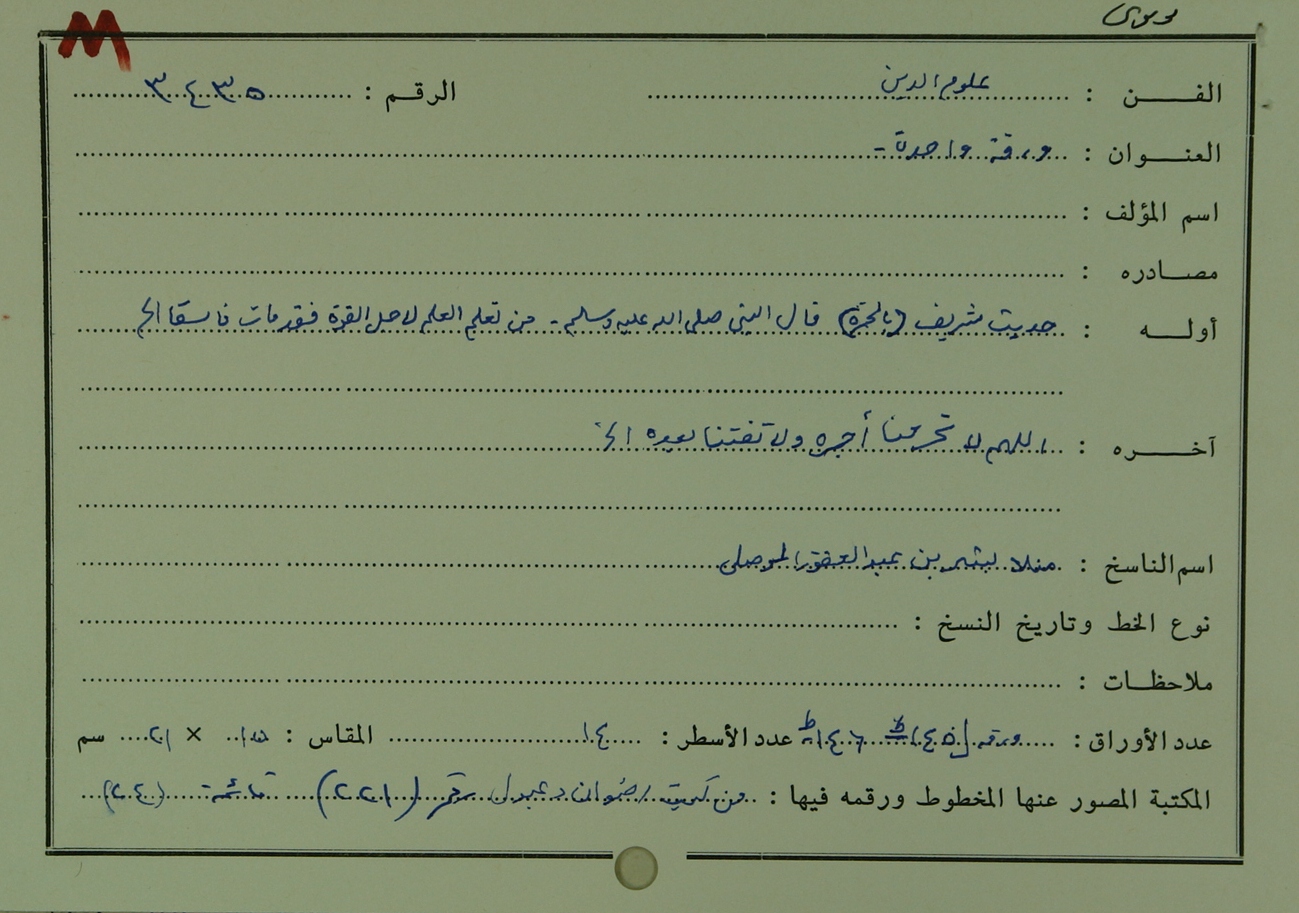 موسوى
M
الفــن : علوم الدين الرقم : ٣٤٣٥
العنـوان : ورقة واحدة -
اسم المؤلف :
مصـادره :
أولـه : حديث شريف (بالحمرة) قال النبي صلى الله عليه وسلم - من تعلم العلم لاجل القدرة فقد مات فاسقا الخ
آخـره : اللهم لا تحرمنا أجره ولا تفتنا بعده الخ
اسم الناسخ : منلا بن عبد الغفور الموصلي
نوع الخط وتاريخ النسخ :
ملاحظـات :
عدد الأوراق : ورقة ١٤٥ ١٤٦ عدد الأسطر : ١٤ المقاس : ١٥ × ٢١ سم
المكتبة المصور عنها المخطوط ورقمه فيها : من رقم (٢٢١) قائمة (٢٤)